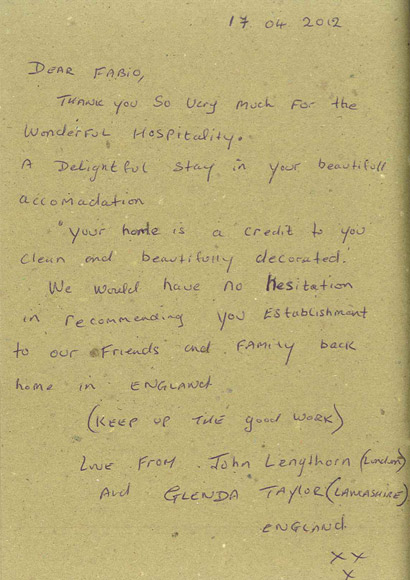 17 04 2012
Dear Fabio,
Thank you so very much for the
wonderful hospitality.
A delightful stay in your beautifull
accomadation
"Your home is a credit to you
clean and beautifully decorated."
We would have no hesitation
in recommending you establishment
to our friends and family back
home in England
(Keep up the good work)
Love from John Langthorn (London)
and Glenda Taylor (Lancashire)
England.
x x
x